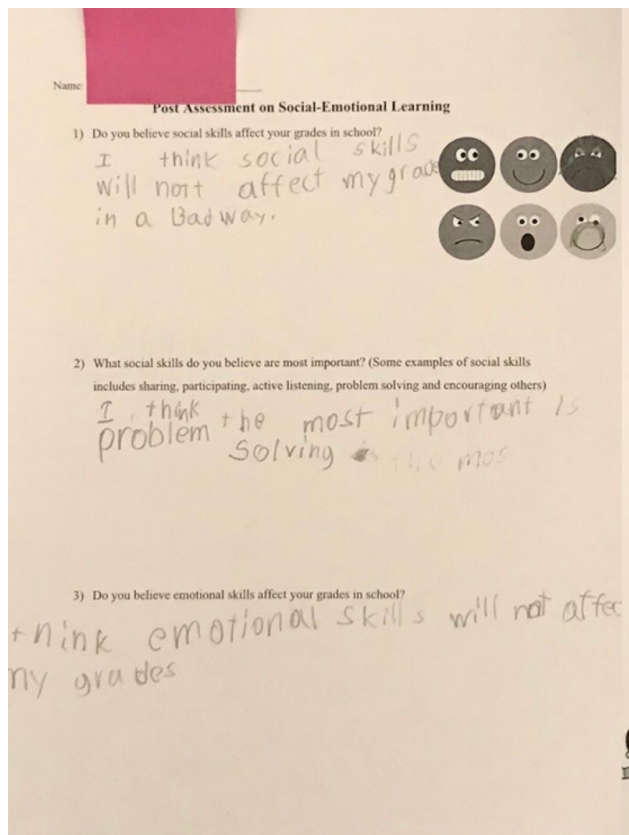 Name
Post Assessment on Social-Emotional Learning
1) Do you believe social skills affect your grades in school?
I think social skills
will nort affect my grade
in a Bad way.
2) What social skills do you believe are most important? (Some examples of social skills
includes sharing, participating, active listening, problem solving and encouraging others)
I think the most important is
problem solving is the mos
3) Do you believe emotional skills affect your grades in school?
think emotional skills will not affec
my grades